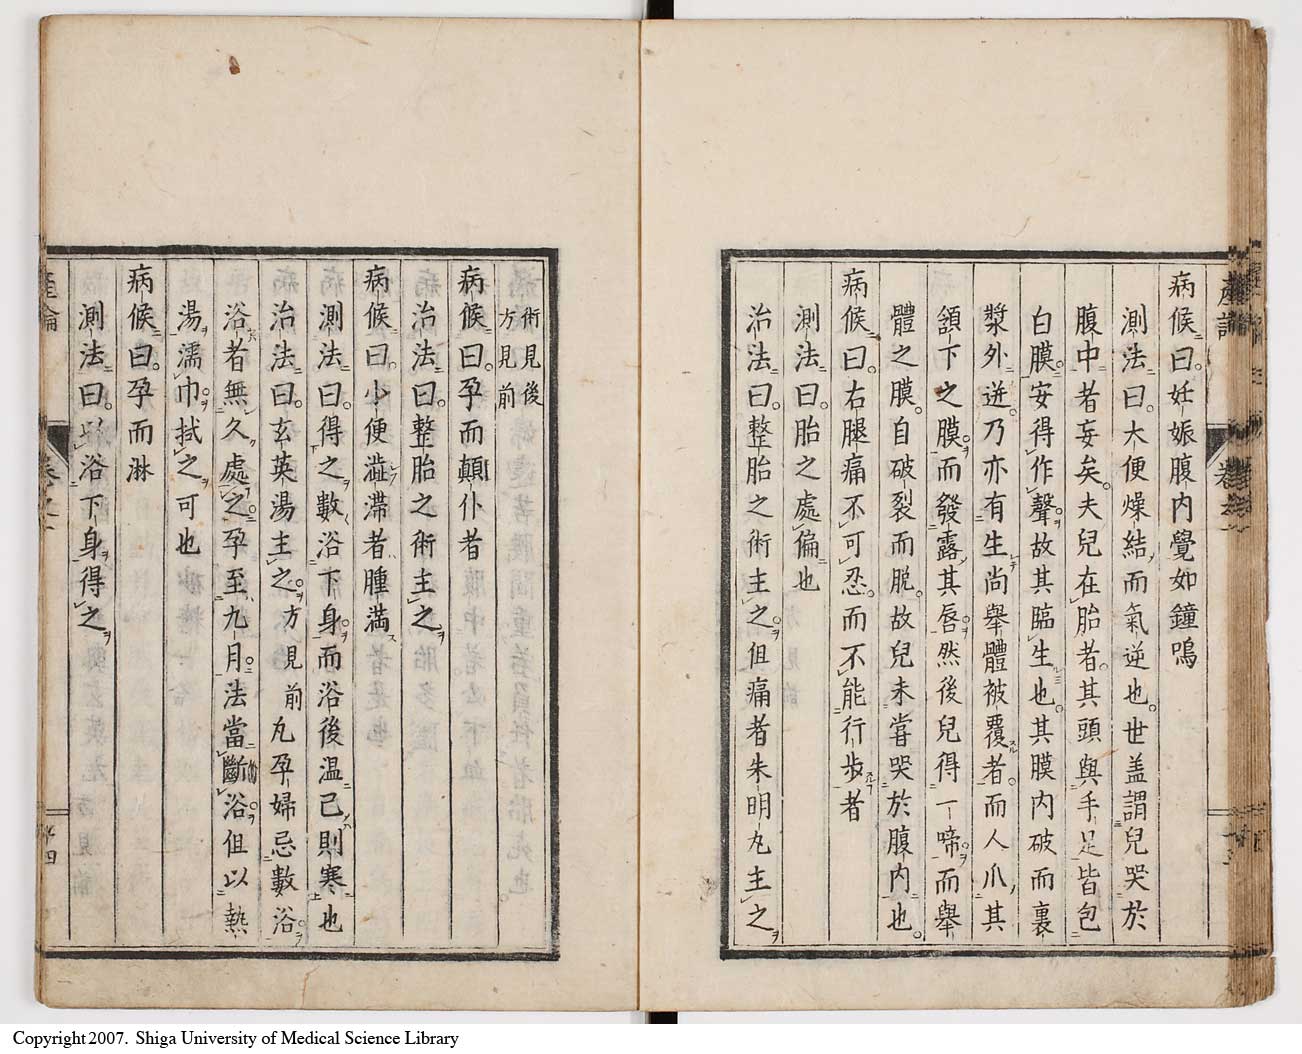 産論
病候曰妊娠腹内覺如鐘鳴
測法曰大便燥結而氣逆也世盖謂兒哭於
腹中者妄矣夫兒在胎者其頭與手足皆包
白膜安得作聲故其臨生也其膜内破而裏
漿外迸乃亦有生尚擧體被覆者而人爪其
頷下之膜而發露其唇然後兒得一啼而擧
體之膜自破裂而脱故兒未嘗哭於腹内也
病候曰右腿痛不可忍而不能行步者
測法曰胎之處偏也
治法曰整胎之術主之但痛者朱明丸主之
術見後
方見前
病候曰孕而顛仆者
治法曰整胎之術主之
病候曰小便澁滞者腫満
測法曰得之數浴下身而浴後温已則寒也
治法曰玄英湯主之方見前凡孕婦忌數浴
浴者無久處之孕至九月法當斷浴但以熱
湯濡巾拭之可也
病候曰孕而淋
測法曰以浴下身得之
産論
卷之二
廿四
Copyright 2007. Shiga University of Medical Science Library